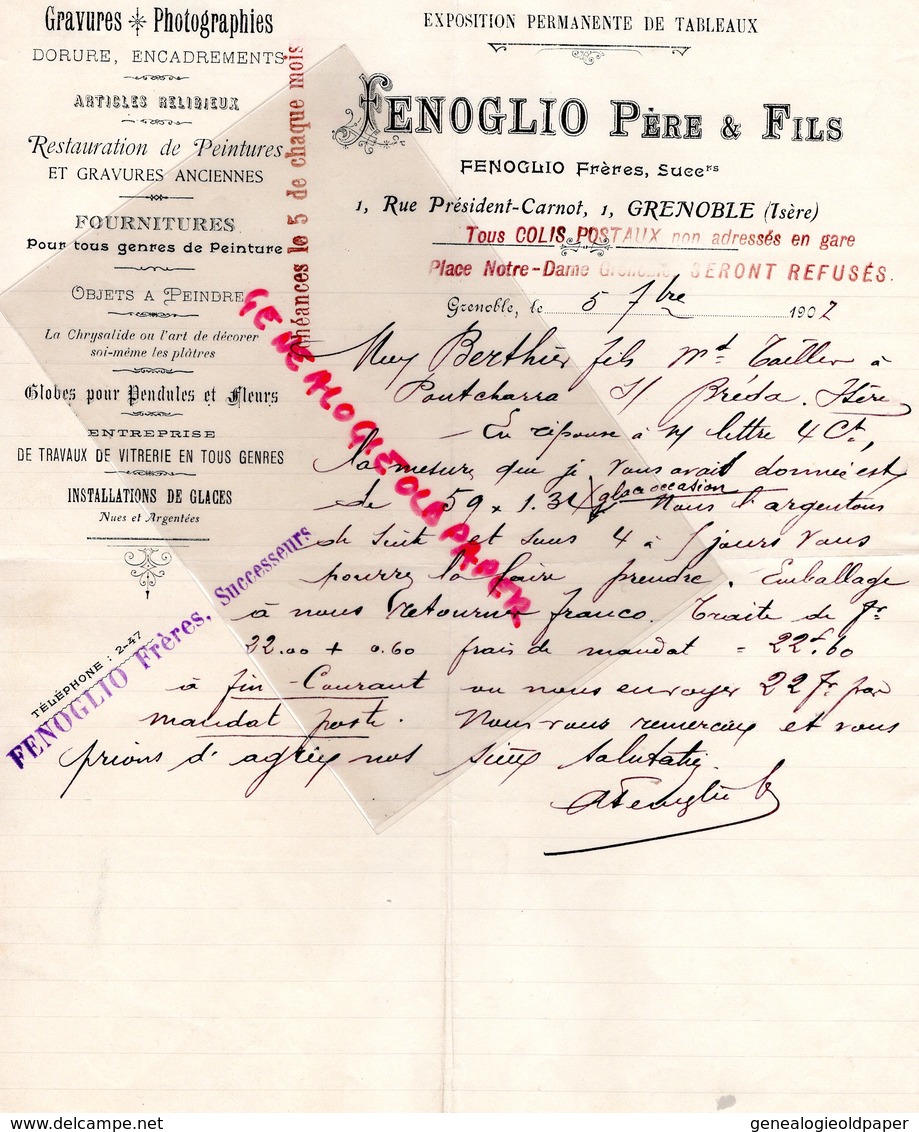 Gravures Photographies
DORURE, ENCADREMENTS
ARTICLES RELIGIEUX
Restauration de Peintures
ET GRAVURES ANCIENNES
FOURNITURES
Pour tous genres de Peinture
OBJETS A PEINDRE
La Chrysalide ou l'art de décorer
soi-même les plâtres
Globes pour Pendules et Fleurs
ENTREPRISE
DE TRAVAUX DE VITRERIE EN TOUS GENRES
INSTALLATIONS DE GLACES
Nues et Argentées
TÉLÉPHONE : 2-47
FENOGLIO Frères, Successeurs
Echéances le 5 de chaque mois
GENEALOGIEOLDPAPER
EXPOSITION PERMANENTE DE TABLEAUX
FENOGLIO PÈRE & FILS
FENOGLIO Frères, Succrs
1, Rue Président-Carnot, 1, GRENOBLE (Isère)
Tous COLIS POSTAUX non adressés en gare
Place Notre-Dame Grenoble SERONT REFUSÉS.
Grenoble, le 5 7bre 1907
Berthier fils Md Tailleur à
Pontcharra S/ Bréda. Isère
En réponse à v/ lettre 4 Ct,
la mesure que je vous avait donnée est
de 59 x 1.31 glace occasion Nous l'argentons
de suite et sous 4 à 5 jours vous
pourrez la faire prendre. Emballage
à nous retourner franco. Traite de Fr
22.00 + 0.60 frais de mandat = 22f.60
à fin-Courant ou nous envoyer 22 Fr par
mandat poste. Nous vous remercions et vous
prions d'agréer nos salutatis
genealogieoldpaper